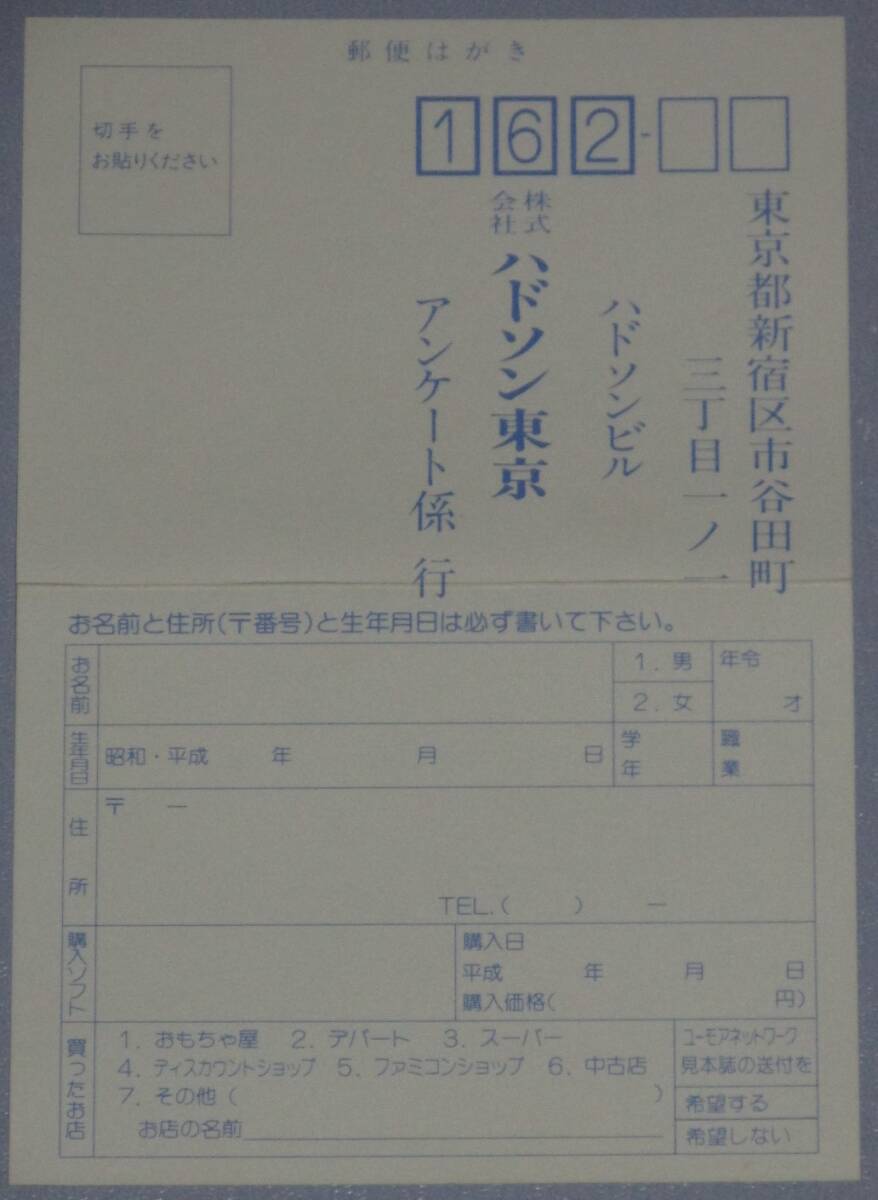 郵便はがき
切手を
お貼りください
162-
東京都新宿区市谷田町
三丁目一ノ一
ハドソンビル
株式会社 ハドソン東京
アンケート係 行
お名前と住所(〒番号)と生年月日は必ず書いて下さい。
お名前
1. 男
2. 女
年令
才
生年月日
昭和・平成 年 月 日
学年
職業
住所
〒 ー
TEL.( ) ー
購入ソフト
購入日
平成 年 月 日
購入価格( 円)
買ったお店
1. おもちゃ屋 2. デパート 3. スーパー
4. ディスカウントショップ 5. ファミコンショップ 6. 中古店
7. その他( )
お店の名前
ユーモアネットワーク
見本誌の送付を
希望する
希望しない